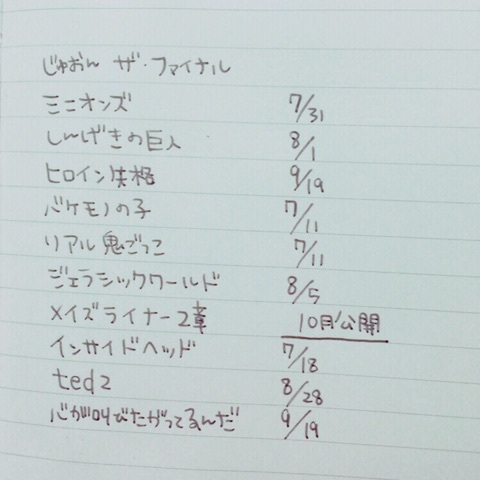 じゅおん ザ・ファイナル
ミニオンズ 7/31
しんげきの巨人 8/1
ヒロイン失格 9/19
バケモノの子 7/11
リアル鬼ごっこ 7/11
ジェラシックワールド 8/5
メイズライナー2章 10月公開
インサイドヘッド 7/18
ted2 8/28
心が叫びたがってるんだ 9/19